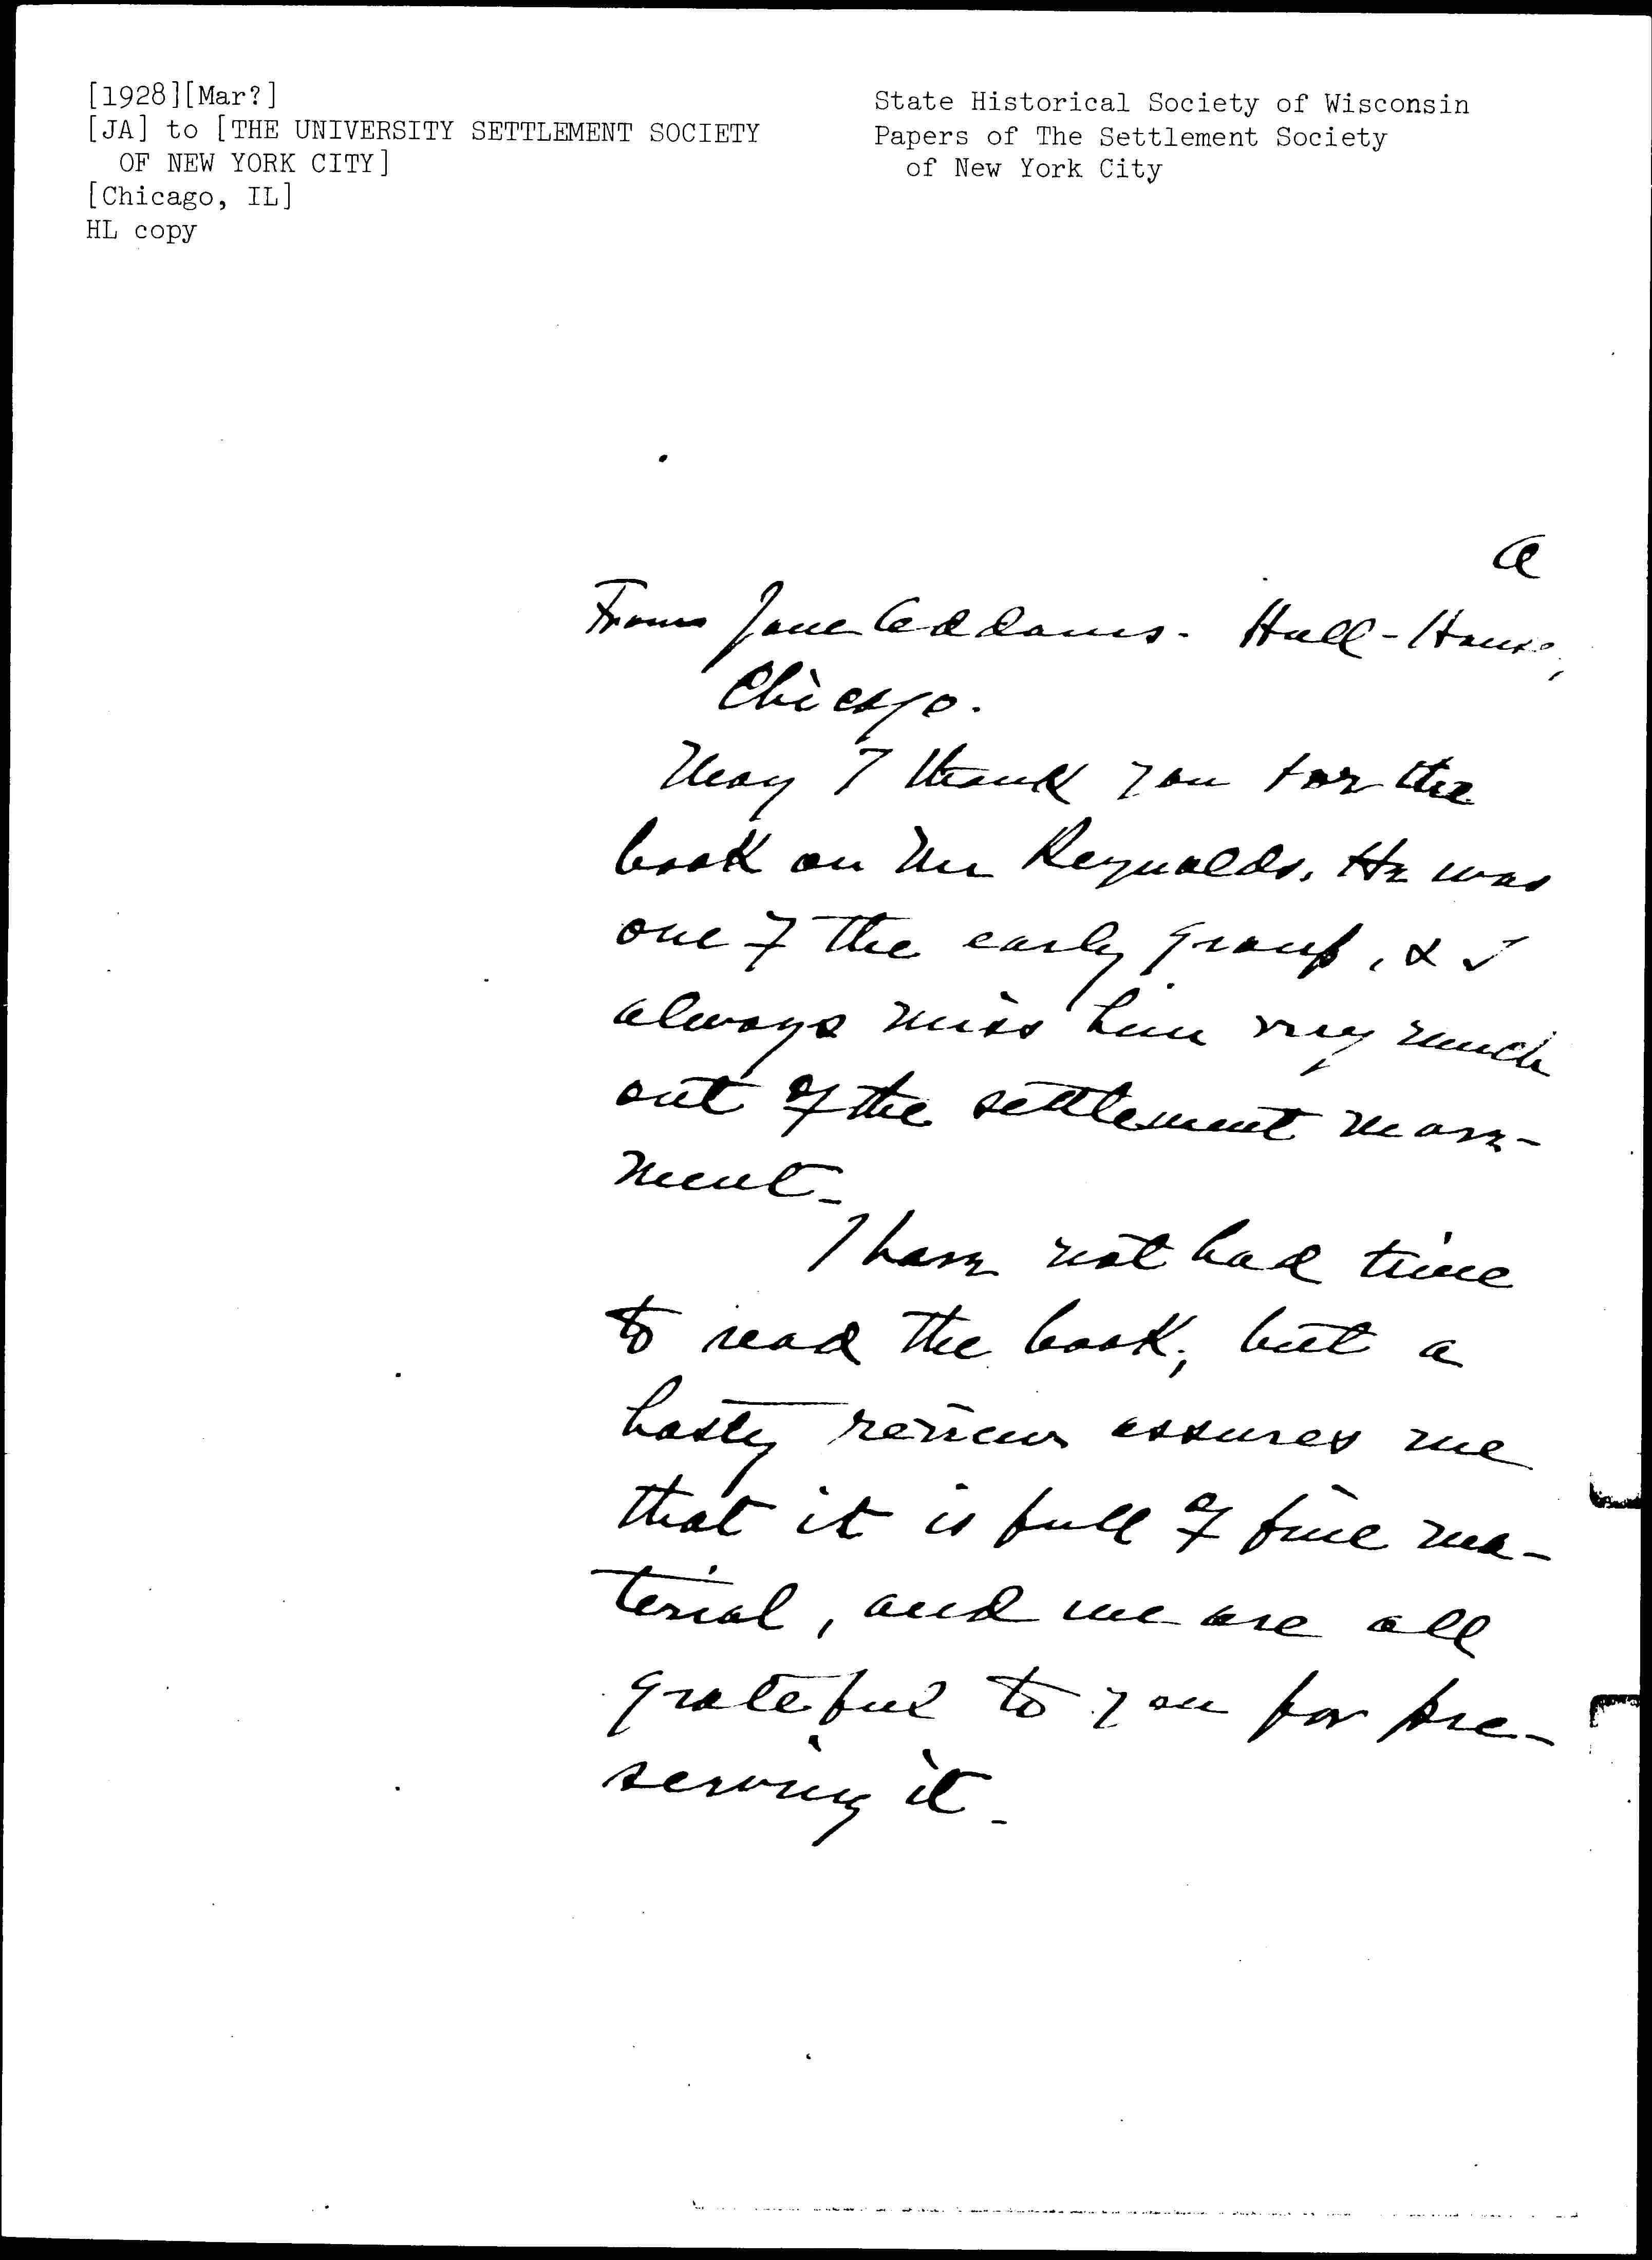 [1928][Mar?]
[JA] to [THE UNIVERSITY SETTLEMENT SOCIETY
OF NEW YORK CITY]
[Chicago, IL]
HL copy
State Historical Society of Wisconsin
Papers of The Settlement Society
of New York City
a
From Jane Addams. Hull-House,
Chicago.
May I thank you for the
book on Mr Reynolds. He was
one of the early group, & I
always miss him very much
out of the settlement move-
ment-
I have not had time
to read the book; but a
hasty review assures me
that it is full of fine ma-
terial, and we are all
grateful to you for pre-
serving it-